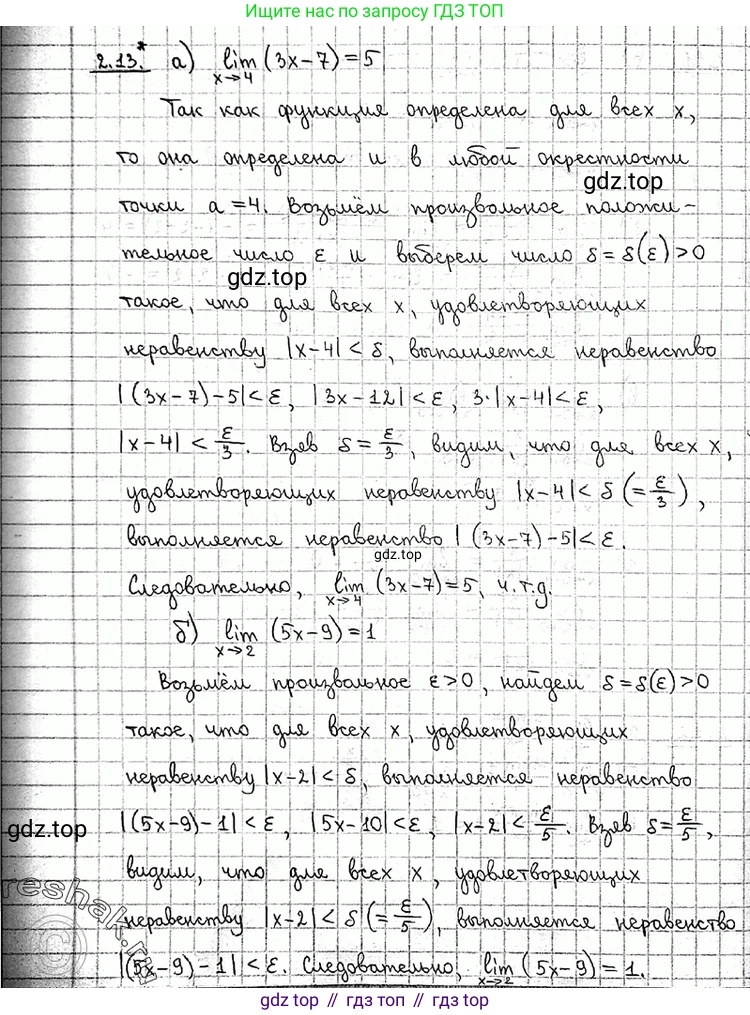 Ищите нас по запросу ГДЗ ТОП
2.13.* а) lim x→4 (3x-7)=5
Так как функция определена для всех x,
то она определена и в любой окрестности
gdz.top
точки a=4. Возьмём произвольное положи-
тельное число ε и выберем число δ=δ(ε)>0
gdz.top
такое, что для всех x, удовлетворяющих
неравенству |x-4|<δ, выполняется неравенство
|(3x-7)-5|<ε, |3x-12|<ε, 3·|x-4|<ε,
|x-4|<ε/3. Взяв δ=ε/3, видим, что для всех x,
удовлетворяющих неравенству |x-4|<δ(=ε/3),
выполняется неравенство |(3x-7)-5|<ε.
gdz.top
Следовательно, lim x→4 (3x-7)=5, ч.т.д.
б) lim x→2 (5x-9)=1
Возьмём произвольное ε>0, найдем δ=δ(ε)>0
такое, что для всех x, удовлетворяющих
неравенству |x-2|<δ, выполняется неравенство
gdz.top
|(5x-9)-1|<ε, |5x-10|<ε, |x-2|<ε/5. Взяв δ=ε/5,
видим, что для всех x, удовлетворяющих
неравенству |x-2|<δ(=ε/5), выполняется неравенство
reshak.ru
|(5x-9)-1|<ε. Следовательно, lim x→2 (5x-9)=1.
gdz.top // гдз.топ // gdz.top // гдз.топ